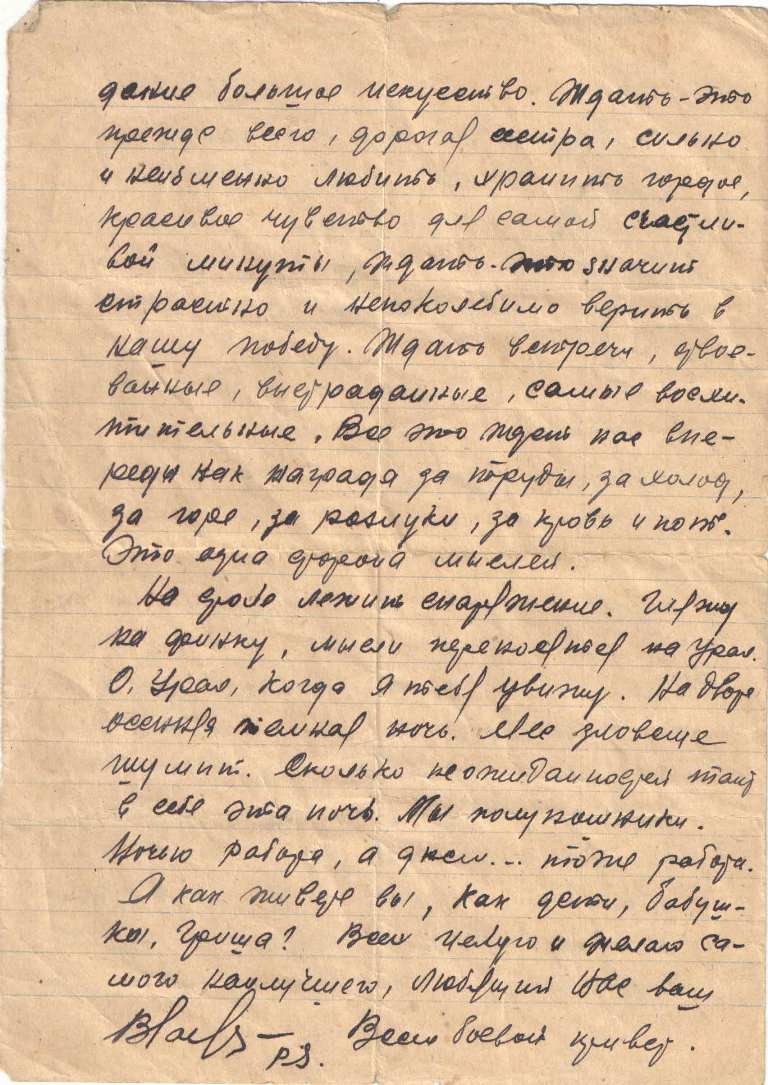 дание большое искусство. Ждать - это
прежде всего, дорогая сестра, сильно
и неизменно любить, хранить гордое,
красивое чувство для самой счастли-
вой минуты, ждать - это значит
страстно и непоколебимо верить в
нашу победу. Ждать встречи, завое-
ванные, выстраданные, самые восхи-
тительные. Все это ждет нас впе-
реди как награда за труды, за холод,
за горе, за разлуки, за кровь и пот.
Это одна сторона мыслей.
На столе лежит снаряжение. Гляжу
на финку, мысли переносятся на Урал.
О, Урал, когда я тебя увижу. На дворе
осенняя темная ночь. Лес зловеще
шумит. Сколько неожиданностей таит
в себе эта ночь. Мы полуношники.
Ночью работа, а днем... тоже работа.
А как живете вы, как дети, бабуш-
ки, Гриша? Всех целую и желаю са-
мого наилучшего, любящий Вас ваш
P.S. Всем боевой привет.